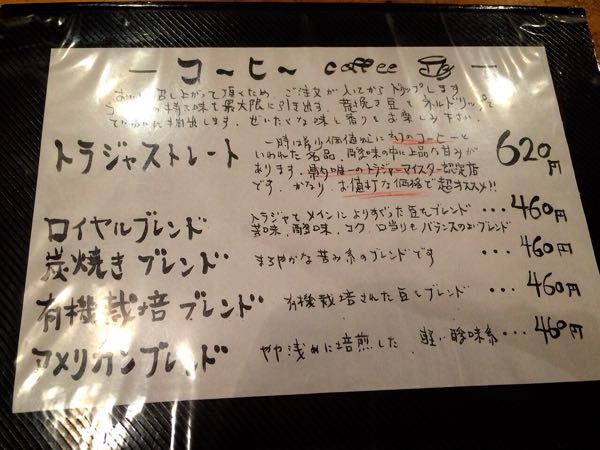 ー コーヒー coffee ー
おいしく召し上がって頂くため、ご注文が入ってからドリップします。
の持つ味を最大限に引き出す、炭焼き豆をネルドリップで
ていねいに抽出します。ぜいたくな味と香りをお楽しみ下さい。
トラジャストレート 一時は希少価値から幻のコーヒーと 620円
いわれた名品。酸味の中に上品な甘みが
あります。県内唯一のトラジャマイスター認定店
です。かなり、お値打な価格で超オススメ!!
ロイヤルブレンド トラジャをメインによりすぐった豆をブレンド ・・・460円
苦味、酸味、コク、口当りもバランスのよいブレンド
炭焼きブレンド まろやかな苦み系のブレンドです ・・・460円
有機栽培ブレンド 有機栽培された豆をブレンド ・・・460円
アメリカンブレンド やや浅めに培煎した 軽い酸味系・・・460円